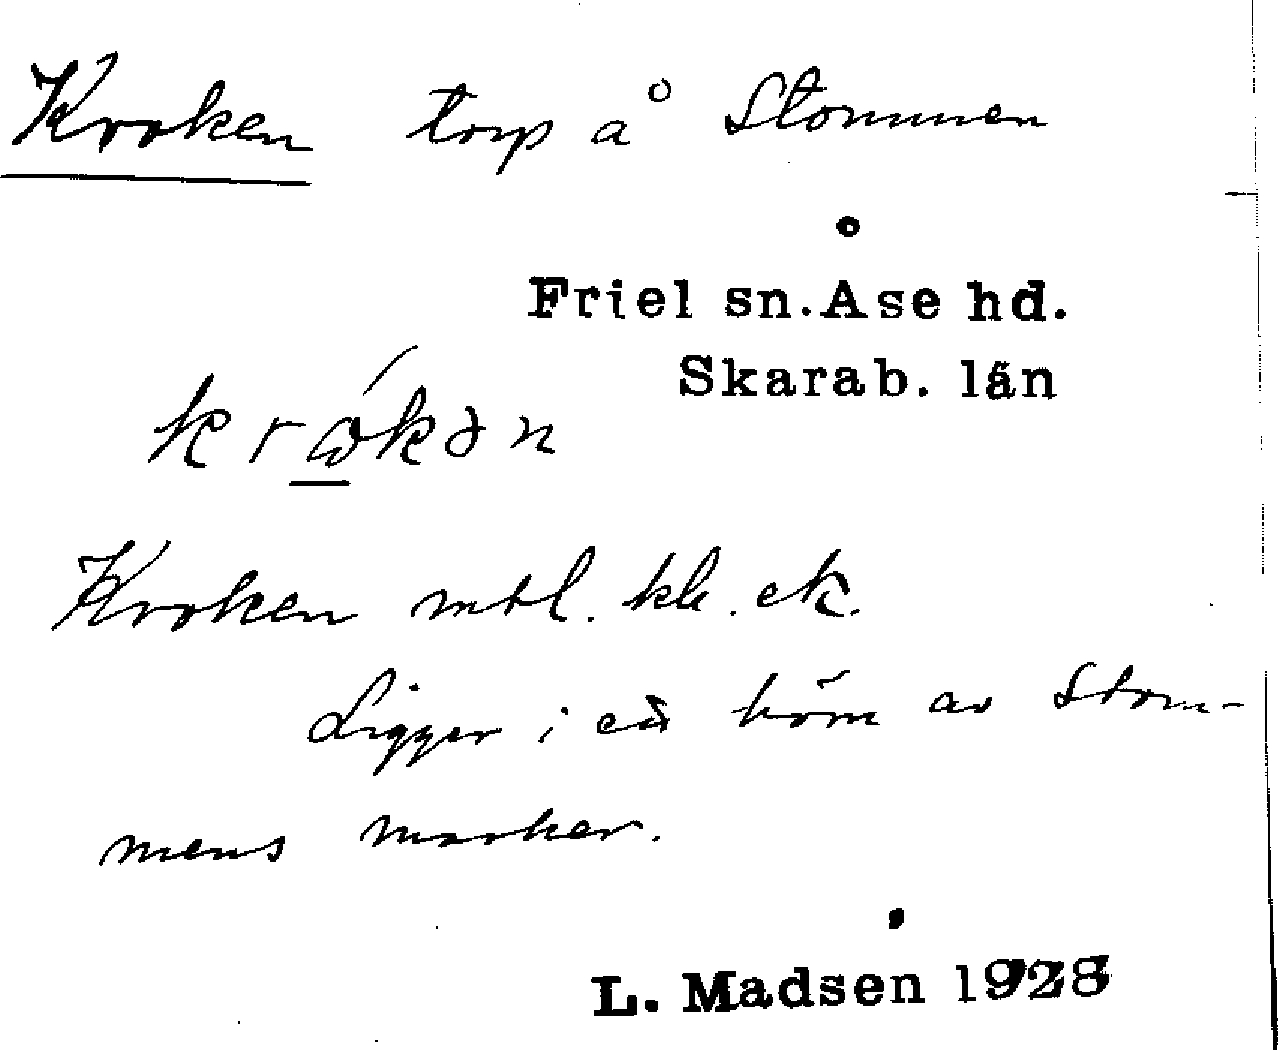 Kroken torp å Stommen
Friel sn. Åse hd.
Skarab. län
krώ̲kən
Kroken mtl. kk. ek.
Ligger i ett hörn av Stom-
mens marker.
L. Madsen 1928